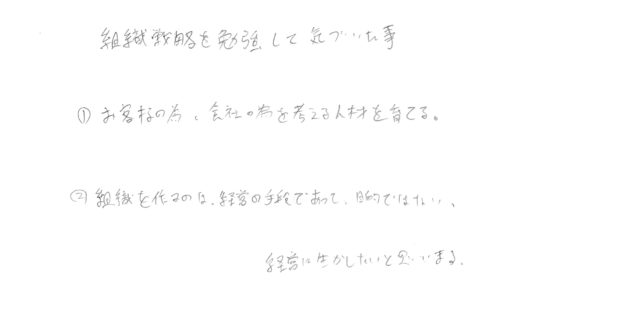 組織戦略を勉強して気づいた事
① お客様の為、会社の為を考える人材を育てる。
② 組織を作るのは、経営の手段であって、目的ではない、
経営に生かしたいと思います。